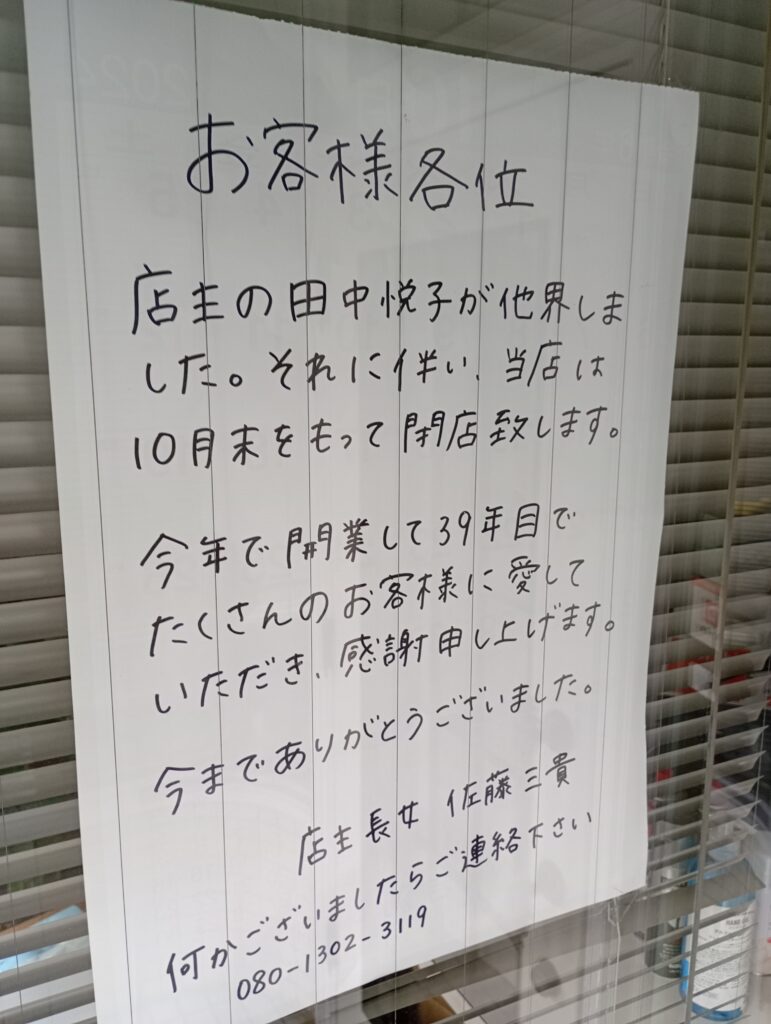 お客様各位
店主の田中悦子が他界しま
した。それに伴い、当店は
10月末をもって閉店致します。
今年で開業して39年目で
たくさんのお客様に愛して
いただき、感謝申し上げます。
今までありがとうございました。
店主長女 佐藤三貴
何かございましたらご連絡下さい
080-1302-3119